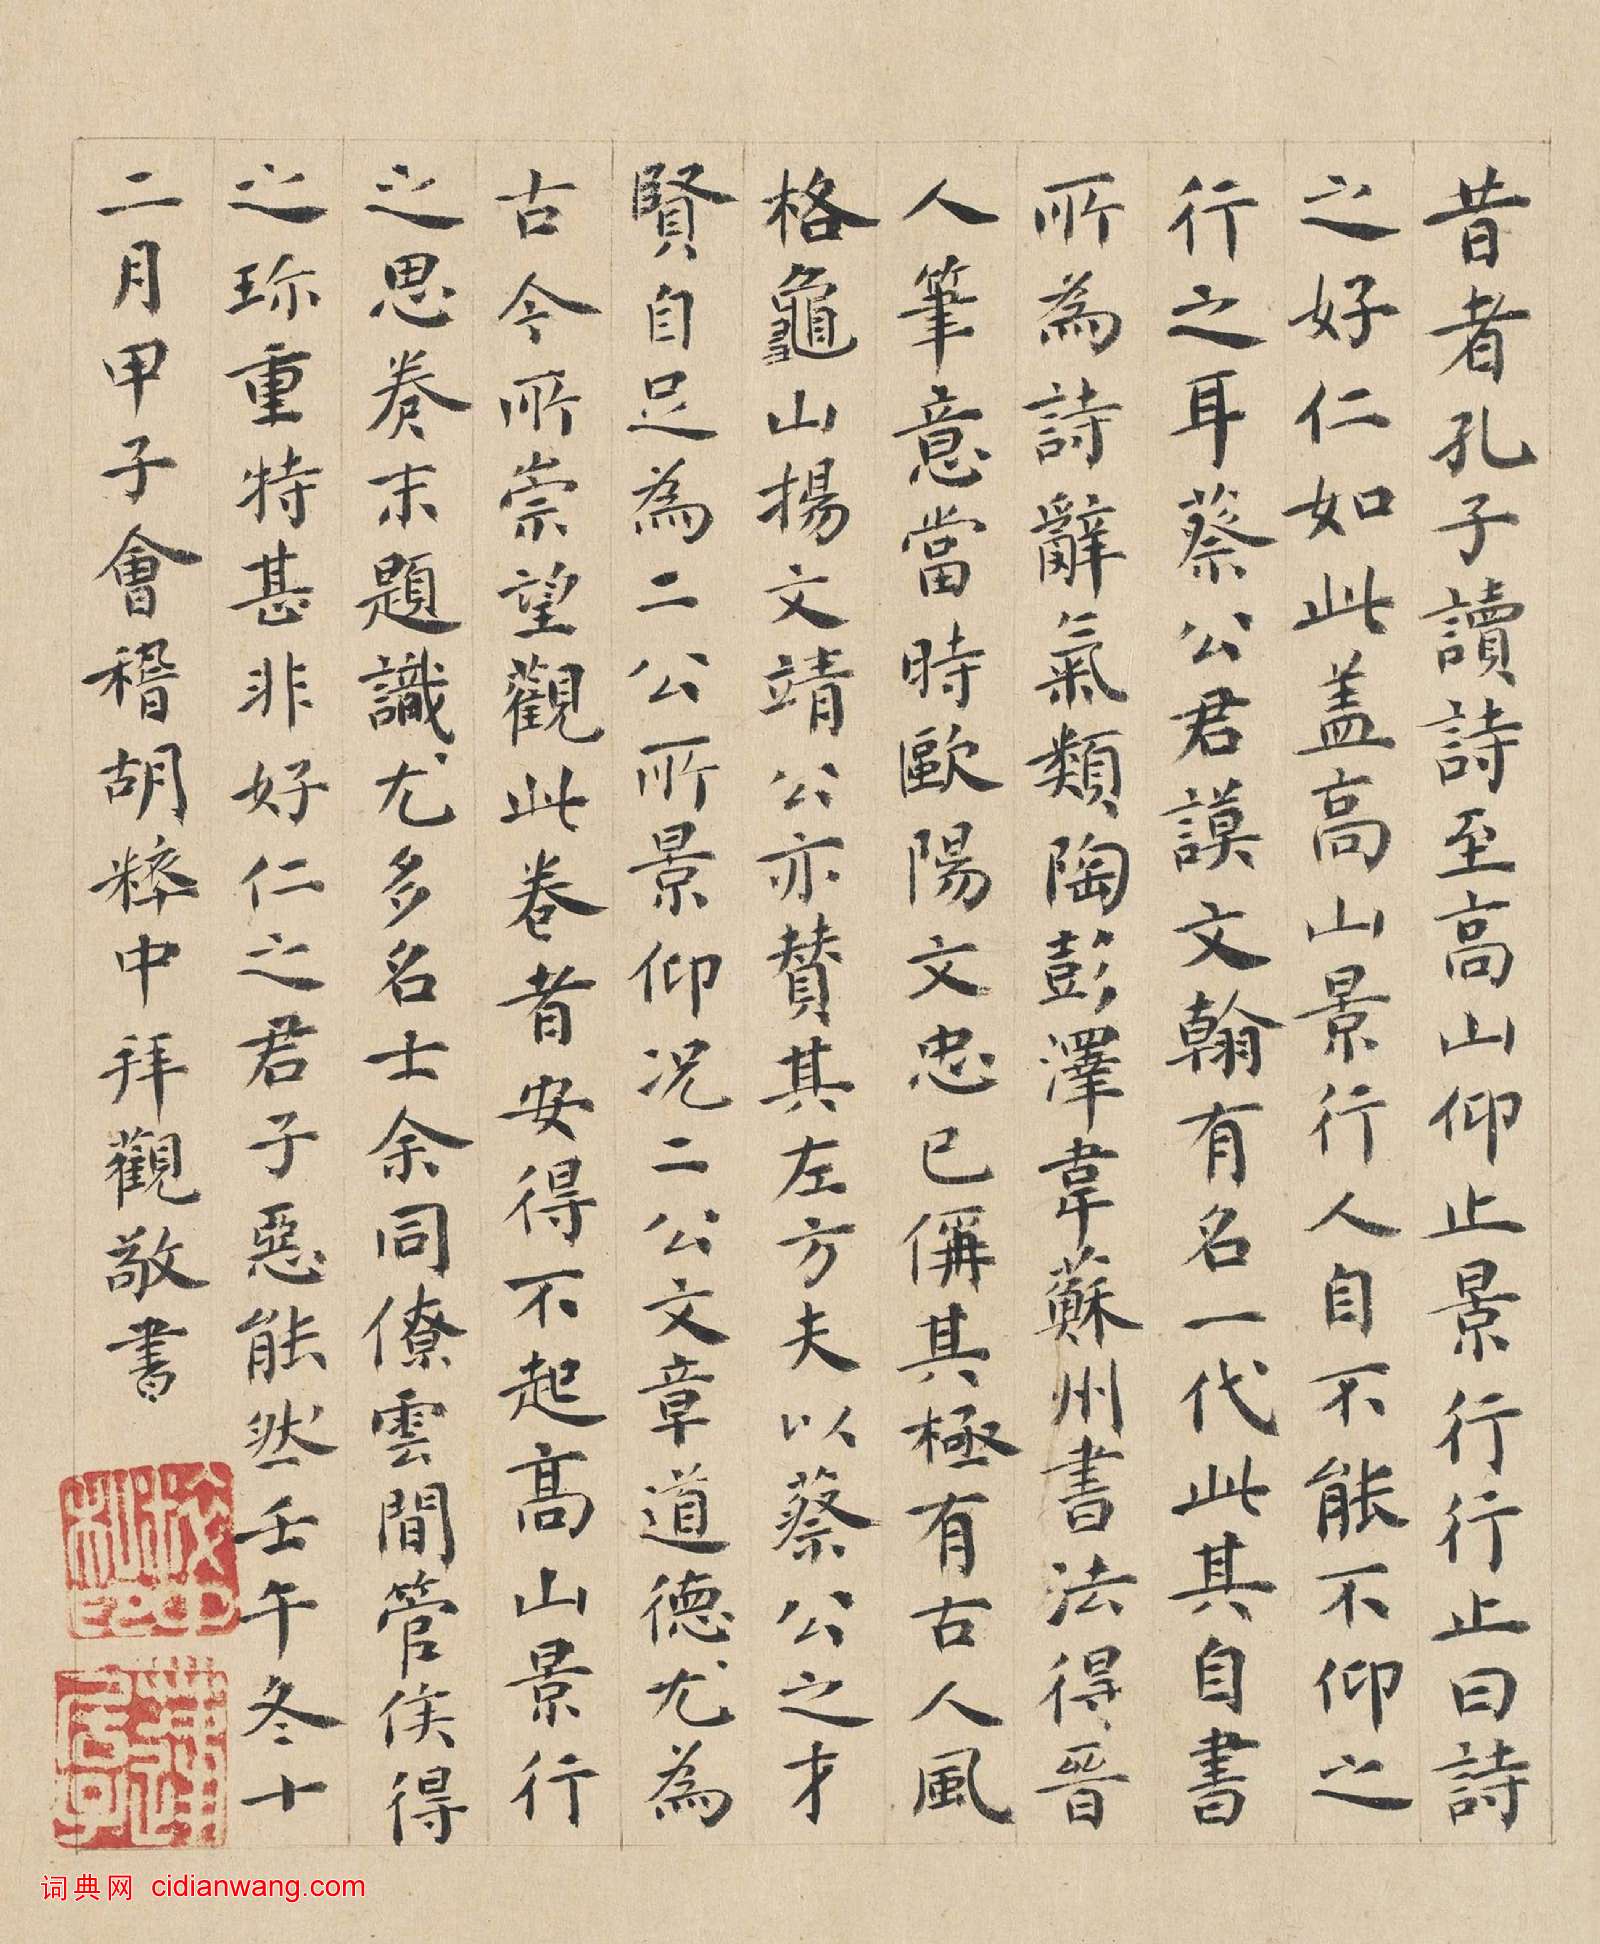 昔者孔子讀詩至高山仰止景行行止曰詩
之好仁如此盖高山景行人自不能不仰之
行之耳蔡公君謨文翰有名一代此其自書
所為詩辭氣類陶彭澤韋蘇州書法得晉
人筆意當時歐陽文忠已偁其極有古人風
格龜山揚文靖公亦贊其左方夫以蔡公之才
賢自足為二公所景仰况二公文章道德尤為
古今所崇望觀此卷者安得不起高山景行
之思卷末題識尤多名士余同僚雲間管侯得
之珎重特甚非好仁之君子惡能然壬午冬十
二月甲子會稽胡粹中拜觀敬書
词典网 cidianwang.com